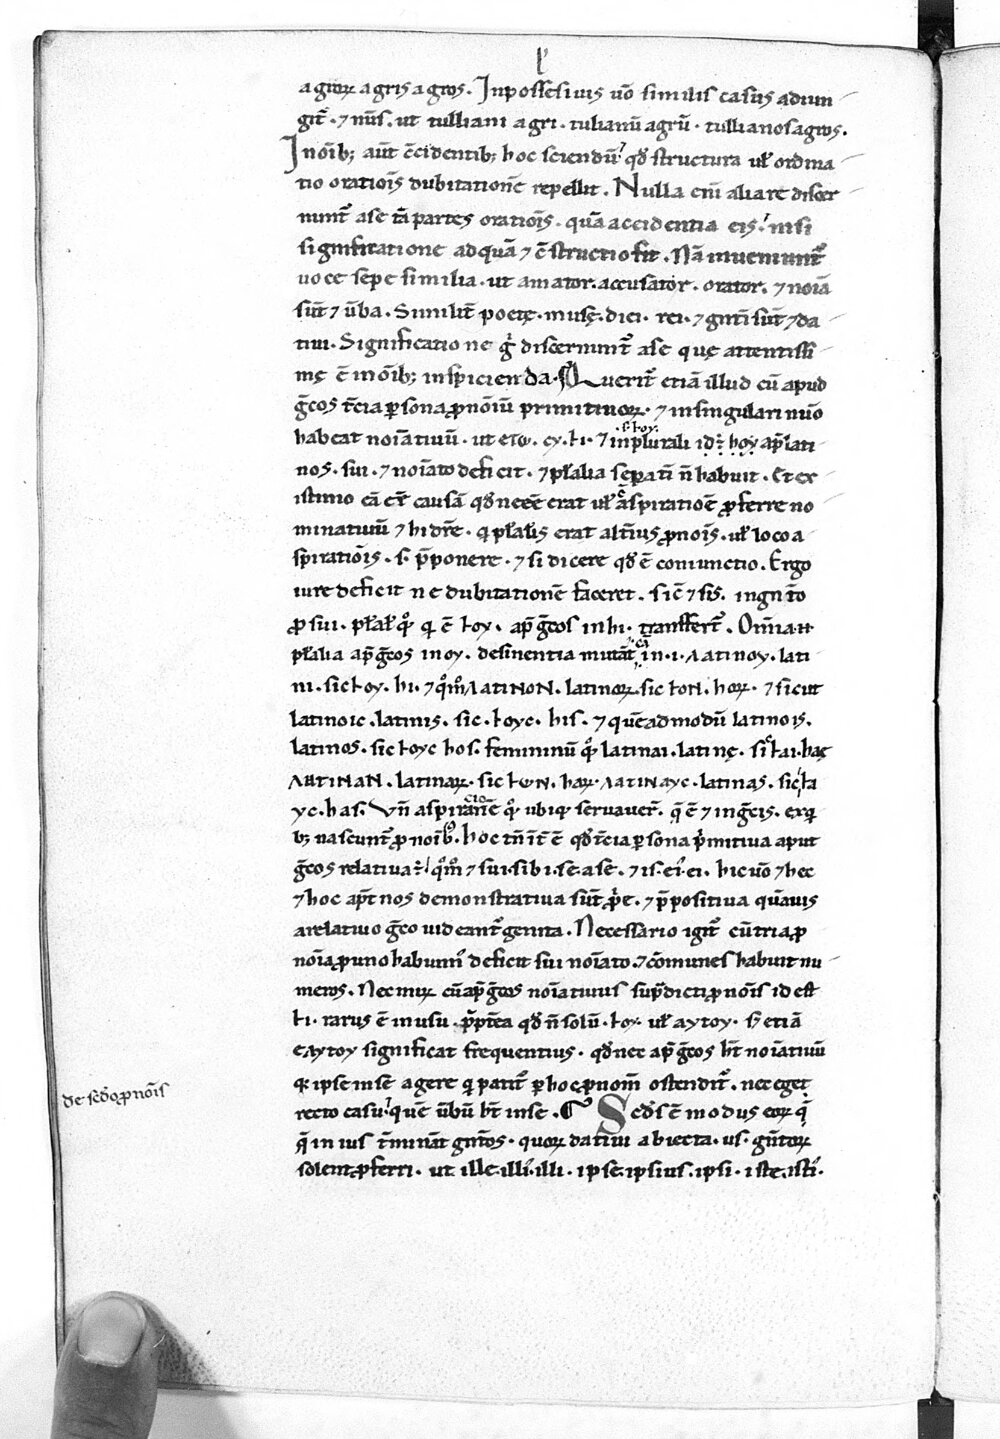 agroꝝ agris agros. Inpossesiuis uō similis casus adiun
git̄. ⁊ nūs. ut tulliani agri. tulianū agrū. tullianos agros.
Inoīb; aūt c̄cidentib; hoc sciendū qđ structura uł ordina
tio oratiōis dubitationē repellit. Nulla enī alia re discer
nunt᷑ ase tā partes oratiōis. quā accidentia eis. nisi
significatione ad quā ⁊ c̄structio fit. Nā inueniunt᷑
uoce sepe similia. ut amator. accusator. orator. ⁊ noīa
sūt ⁊ ūba. Similit̄ poetę. musę. diei. rei. ⁊ gn̄ti sūt ⁊ da
tiui. Significatione ḡ discernunt᷑ ase quę attentissi
mę ē inoīb; inspicienda. Querit᷑ etiā illud cū apud
ḡcos t̄cia ꝑsona ꝓnōiū primitiuoꝝ. ⁊ insingulari nūo
habeat noīatiuū. ut εΓω. cy. ⱶi. ⁊ inplurali id ⱶoy ap̄ lati
nos. sui. ⁊ noīato deficit. ⁊ pł̄alia sepatī n̄ habuit. Et ex
istimo eā eē causā qđ necēē erat uł aspiratiōē ꝓferre no
minatiuū ⁊ hi dr̄e. q pł̄alis erat alt̄ius ꝓnoīs. uł loco a
spiratiōis. s. p̄ponere. ⁊ si dicere qđ ē coniunctio. Ergo
iure deficit ne dubitationē faceret. sic̄ ⁊ sis. ingn̄to
ꝓ sui. pł̄al q̊ꝫ qi ē ⱶoy. ap̄ ḡcos inhi. transfert᷑. Om̄ia.n
pł̄alia ap̄ ḡcos inoy. desinentia mutāt eā in. i. ΛaTINoy. lati
ni. sic ⱶoy. hi. ⁊ q̊m̄ ΛaTINoN. latinoꝝ. sic ⱶoN. hoꝝ. ⁊ sicut
latinoic. latinis. sic. ⱶoyc. his. ⁊ quēadmodū latinois.
latinos. sic ⱶoyc hos. femininū q̊ꝫ latinai. latinę. sic̄ ⱶai. hąc
ΛaTINaN. latinaꝝ. sic ⱶωN. haꝝ. ΛaTINayc. latinas. sic ⱶa
yc. has. Vn̄ aspirationē q̊ꝫ ubiq; seruauer̄. q̄ ē ⁊ inḡcis. exqi
b; nascunt᷑ ꝓnoīb;. hoc tn̄ īt̄ē qđ t̄cia ꝑsona p̄mitiua aput
ḡcos relatiua ÷ q̊m̄ ⁊ sui. sibi. se. ase. ⁊ is. ei. ei. hic uō ⁊ hec
⁊ hoc ap̄t nos demonstratiua sūt p̄t. ⁊ p̄positiua quāuis
arelatiuo ḡco uideant᷑ genita. Necessario igit᷑ cū tria ꝓ
noīa ꝓuno habuim᷒ deficit sui noīato. ⁊ cōmunes habuit nu
meros. Nec miꝝ cū ap̄ ḡcos noīatiuus sup̄dicti ꝓnoīs id est
ⱶi. rarus ē inusu. p̄pt̄ea qđ n̄ solū. ⱶoy. uł aytoy. s; etiā
eaytoy significat frequentius. qđ nec ap̄ ḡcos h̄t noīatiuū
q; ipse inse agere qi patit᷑ ꝑ hoc ꝓnom̄ ostendit᷑. nec eget
recto casu. quē ūbū h̄t inse. Sed̄s ē modus eoꝝ q̄
q̄ in ius t̄mināt gn̄tos. quoꝝ datiui abiecta. us. gn̄toꝝ
solent ꝓferri. ut ille. illi. illi. ipse. ipsius. ipsi. iste. isti.
de sed̄o ꝓnōis